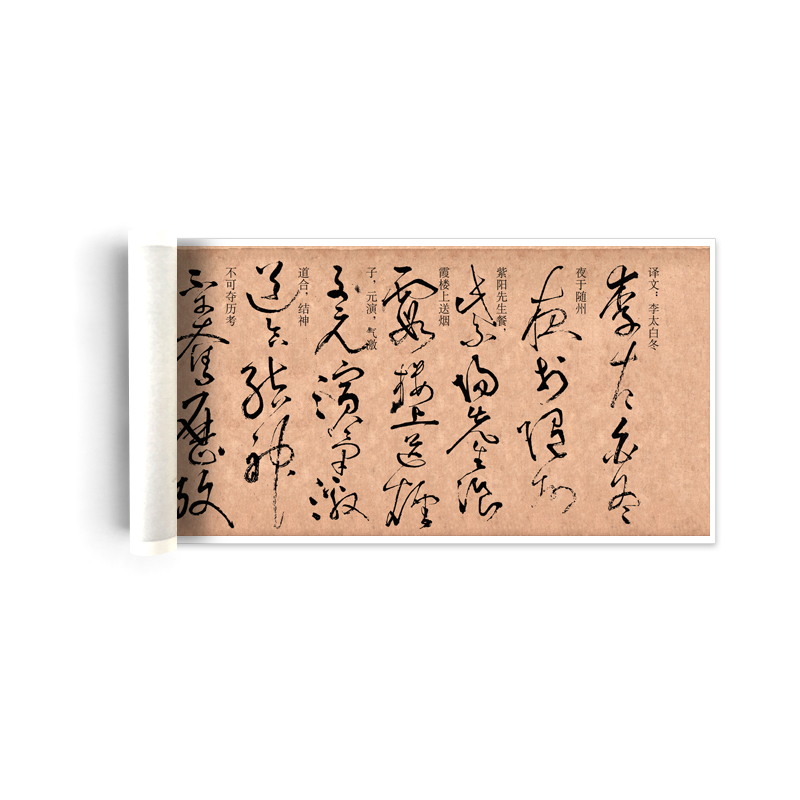 译文：李太白冬
李太白冬
夜于随州
夜於隨州
紫阳先生餐
紫陽先生飡
霞楼上送烟
霞樓上送煙
子，元演，气激
子元演氣激
道合，结神
道合結神
不可夺历考
不可奪歷